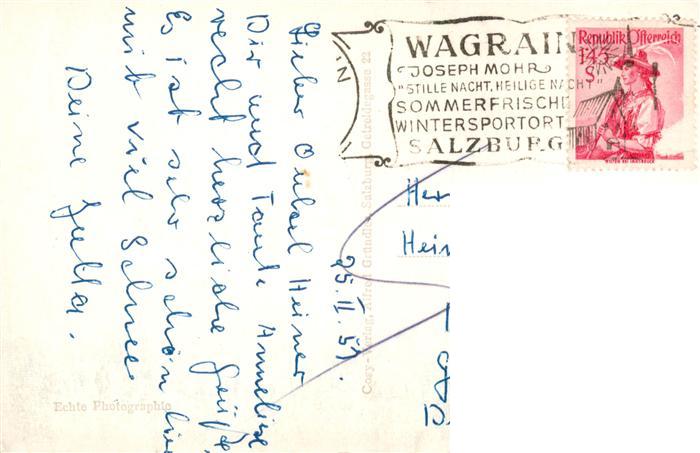 WAGRAIN
JOSEPH MOHR
"STILLE NACHT, HEILIGE NACHT"
SOMMERFRISCHE
WINTERSPORTORT
SALZBURG
Republik Österreich
1·45
S
Her
Hein
25.II.51.
Lieber Onkel Heiner
Dir und Tante Anneliese
recht herzliche Grüße.
Es ist sehr schön hier
mit viel Schnee
Deine Jutta.
Cosy-Verlag, Alfred Gründler, Salzburg, Getreidegasse 22
Echte Photographie